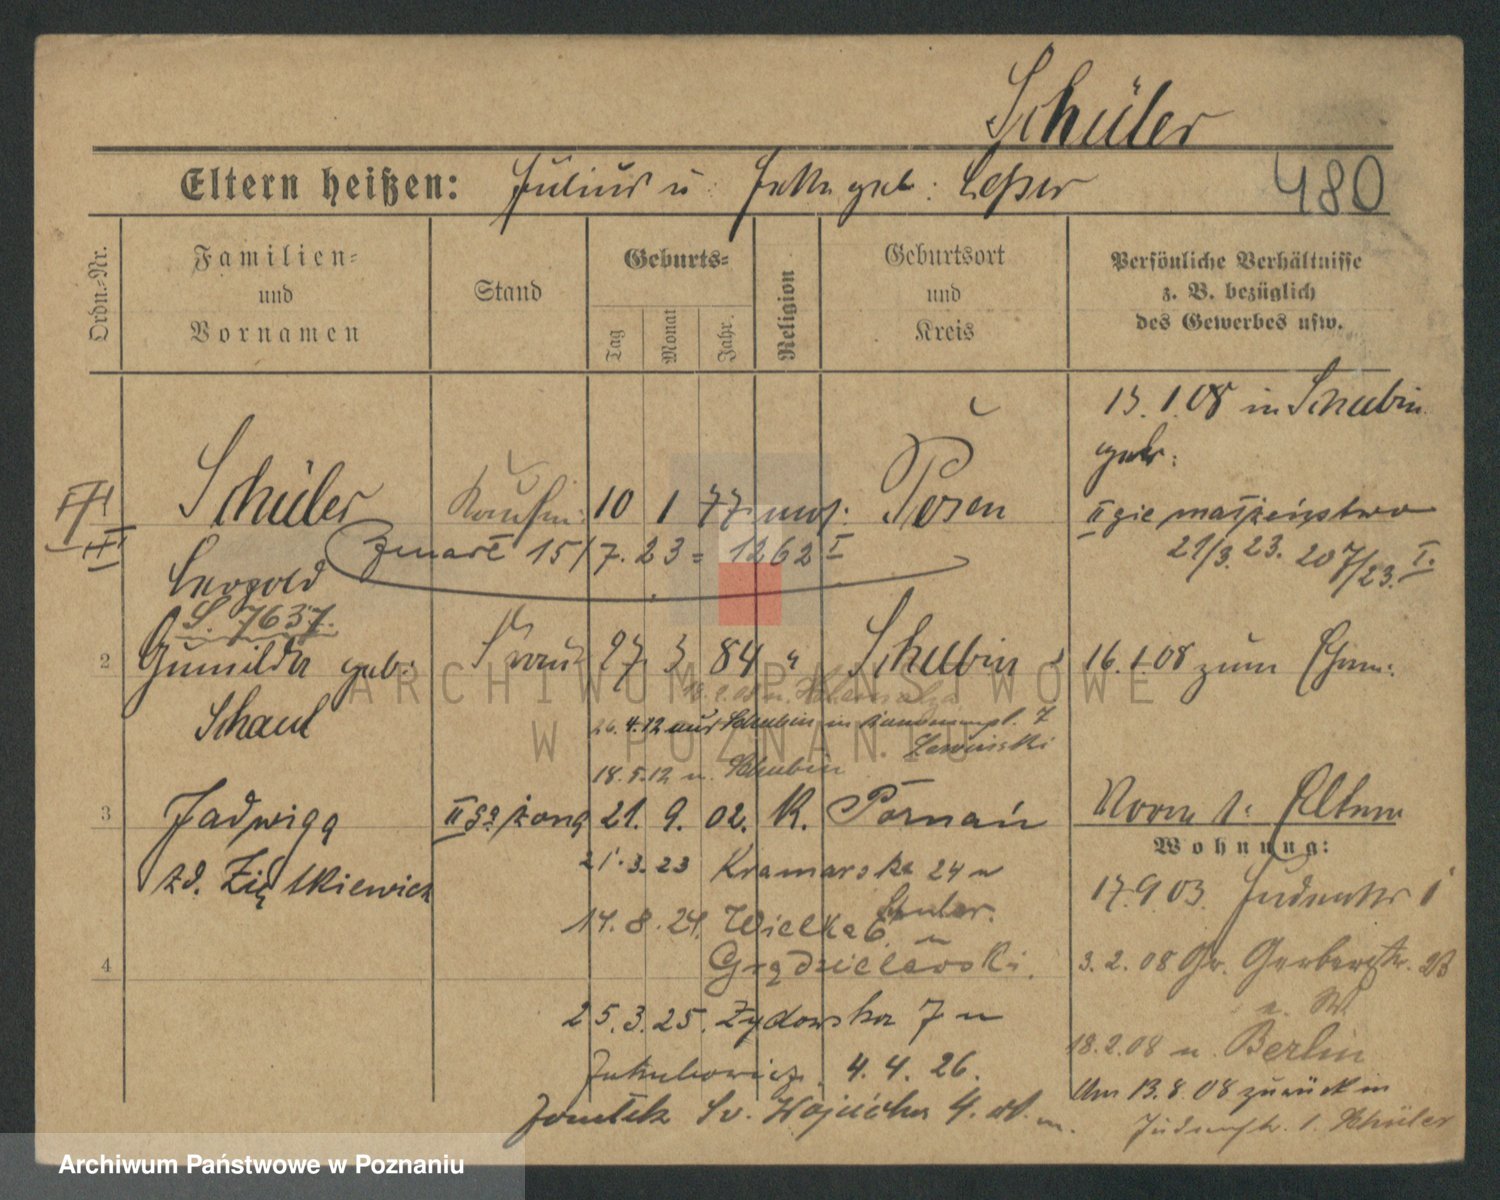 Schüler
Eltern heißen: Julius u. geb: Lesser
480
Ordn.-Nr.
Familien-
und
Vornamen
Stand
Geburts-
Tag
Monat
Jahr.
Religion
Geburtsort
und
Kreis
Persönliche Verhältnisse
z. B. bezüglich
des Gewerbes usw.
13.1.08 in Schubin
geb:
Schüler Kaufm: 10 1 77 mos: Posen
II gie małżeństwo
21/3.23. 207/23. I.
zmarł 15/7.23 = 1262 I
Leopold
S. 7637.
2 Gumilda geb: Frau 27 3 84 " Schubin
16.1.08 zum
Schaul
26.4.12 aus Schubin in 7
18.5.12 n. Schubin
3 Jadwiga II ga żona 21. 9. 02. K. Poznań
Vorn 1: Eltern
Wohnung:
zd. Ziętkiewicz
21.3.23 Kramarska 24 u
Schuler.
17.9.03. Judenstr 1
14.8.24. Wielka 6 u
Grądzielewski.
4
3.2.08 Gr. Gerberstr. 23
25.3.25. Żydowska 7 u
18.2.08 n. Berlin
Jakubowicz. 4.4.26.
Um 13.8.08 zurück in
Św. Wojciecha 4.
Judenstr. 1. Schüler
ARCHIWUM PAŃSTWOWE
W POZNANIU
Archiwum Państwowe w Poznaniu